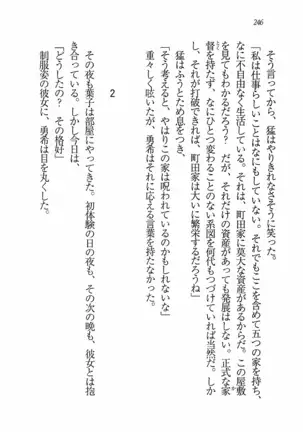 246
そう言ってから、猛はやりきれなさそうに笑った。
「私は仕事らしいことはなにもしていない。それでもここを含めて五つの家を持ち、
なに不自由なく生活しているのは、町田家に莫大な資産があるからだ。この屋敷
を見てもわかるだろう？　だが、それだけの資産があっても発展はしない。正式な家
督を持たず、なにひとつ変わることのない系図を何代もつづけていれば当然だ。しか
し、それが打破できれば、町田家は大いに繁栄するだろうね」
猛はふうとため息をつき、
「そう考えると、やはりこの家は呪われているのかもしれないな」
重々しく呟いたが、勇希はそれに応える言葉を持たなかった。
2
その夜も葉子は部屋にやってきた。初体験の日の夜も、その次の晩も、彼女とは抱
き合っている。しかし今日は、
「どうしたの？　その格好」
制服姿の彼女に、勇希は目を丸くした。